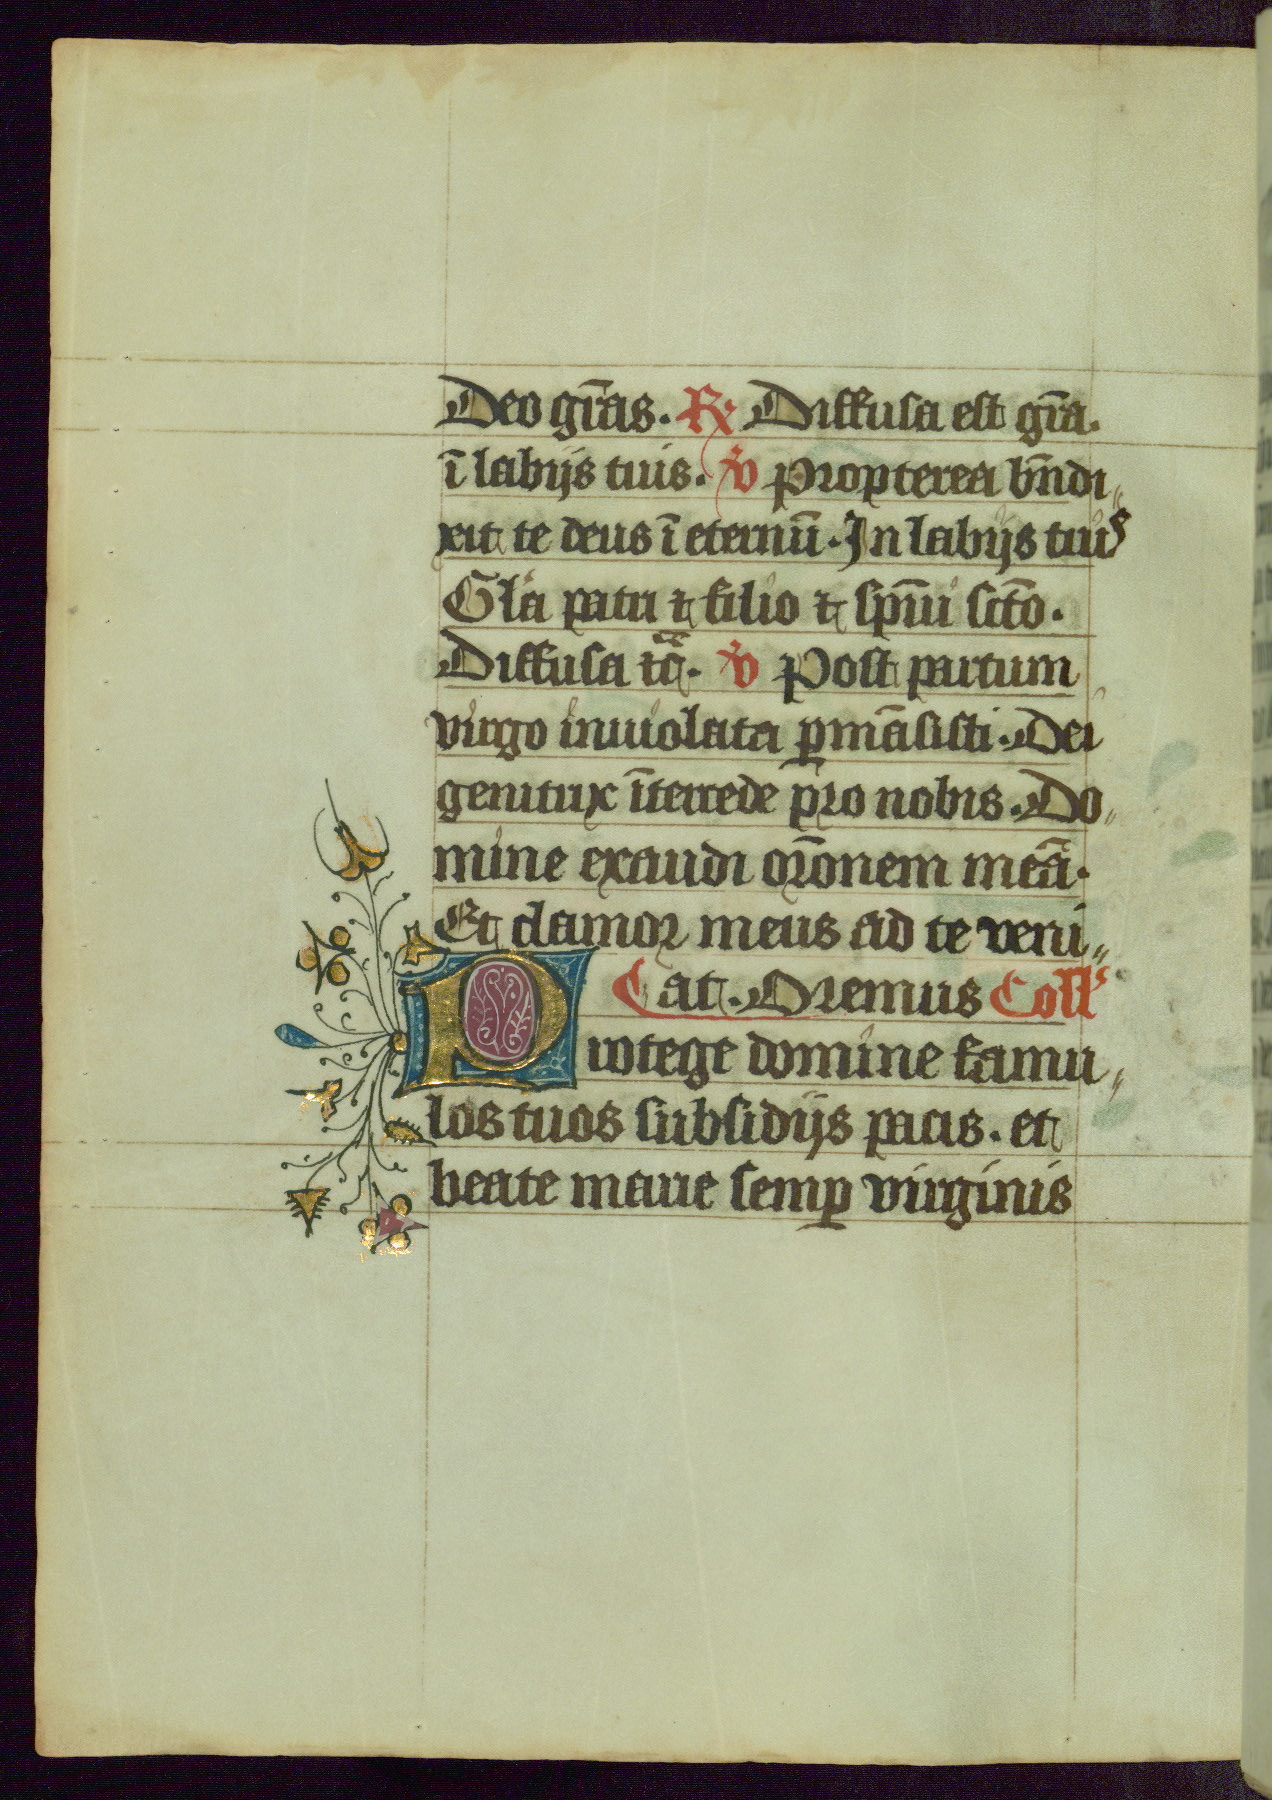 Deo gr̄as. R̷ Diffusa est gr̄a.
ī labijs tuis. v̄ Propterea bn̄di„
xit te deus ī eternū. In labijs tuis
Gl̓a patri ⁊ filio ⁊ sp̄iui sct̄o.
Diffusa ⁊c̄. v̄ Post partum
virgo inuiolata ꝑmāsisti. Dei
genitrix īterrede pro nobis. Do„
mine exaudi or̄onem meā.
Et clamor meus ad te veni„
at. Oremus Coll̓s
Protege domine famu„
los tuos subsidijs pacis. et
beate marie semꝑ virginis